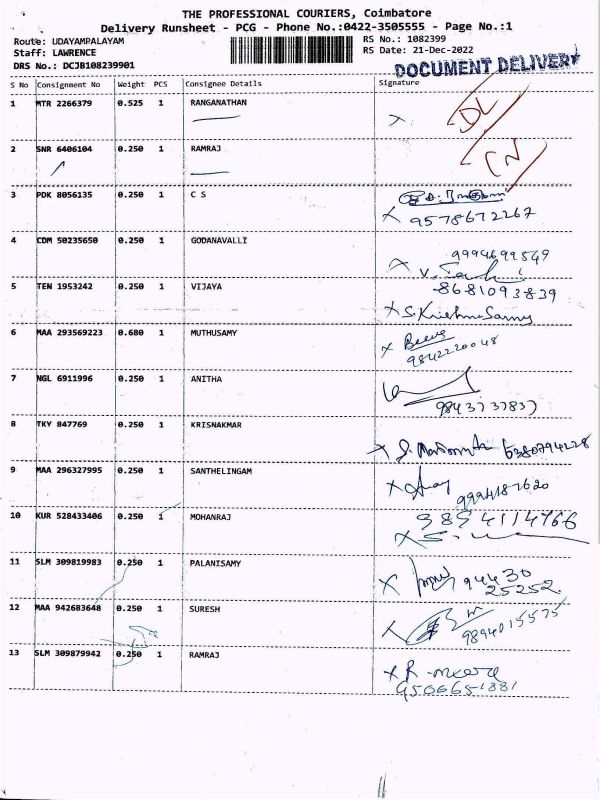 THE PROFESSIONAL COURIERS, Coimbatore
Delivery Runsheet - PCG - Phone No.:0422-3505555 - Page No.:1
Route: UDAYAMPALAYAM
RS No.: 1082399
Staff: LAWRENCE
RS Date: 21-Dec-2022
DRS No.: DCJB108239901
DOCUMENT DELIVERY
S No Consignment No Weight PCS Consignee Details Signature
1 MTR 2266379 0.525 1 RANGANATHAN X DL
2 SNR 6406104 0.250 1 RAMRAJ CN
3 PDK 8056135 0.250 1 C S
X 9578672267
4 CDM 50235650 0.250 1 GODANAVALLI 9994699549
X V.
5 TEN 1953242 0.250 1 VIJAYA 8681093839
X S. Krishna Samy
6 MAA 293569223 0.680 1 MUTHUSAMY X
9842220048
7 NGL 6911996 0.250 1 ANITHA
9843737837
8 TKY 847769 0.250 1 KRISNAKMAR
X 6380794228
9 MAA 296327995 0.250 1 SANTHELINGAM X
9994187620
10 KUR 528433406 0.250 1 MOHANRAJ 9894114766
X S.
11 SLM 309819983 0.250 1 PALANISAMY X 94430
25252
12 MAA 942683648 0.250 1 SURESH X
9894015575
13 SLM 309879942 0.250 1 RAMRAJ X R. meera
9506651881